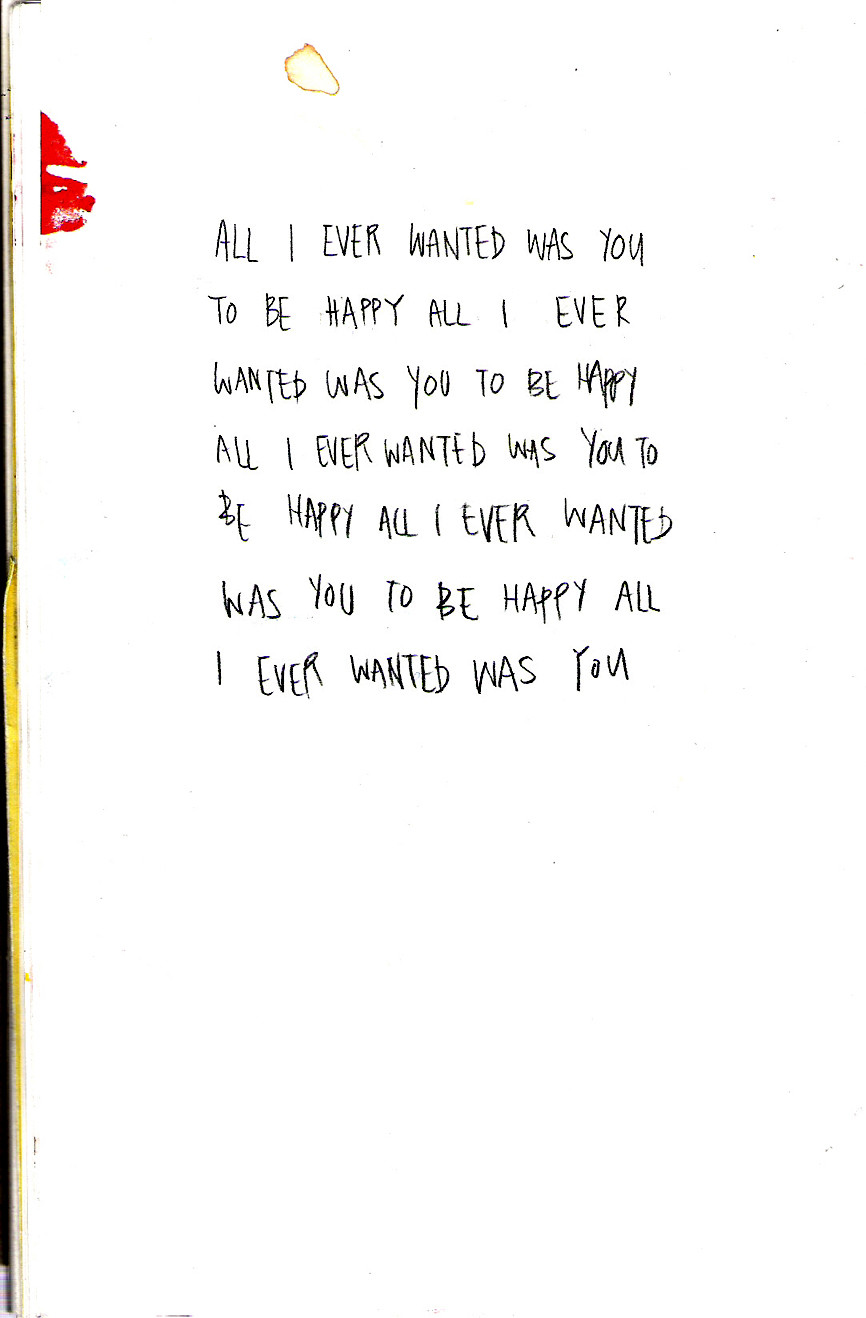 ALL I EVER WANTED WAS YOU
TO BE HAPPY ALL I EVER
WANTED WAS YOU TO BE HAPPY
ALL I EVER WANTED WAS YOU TO
BE HAPPY ALL I EVER WANTED
WAS YOU TO BE HAPPY ALL
I EVER WANTED WAS YOU